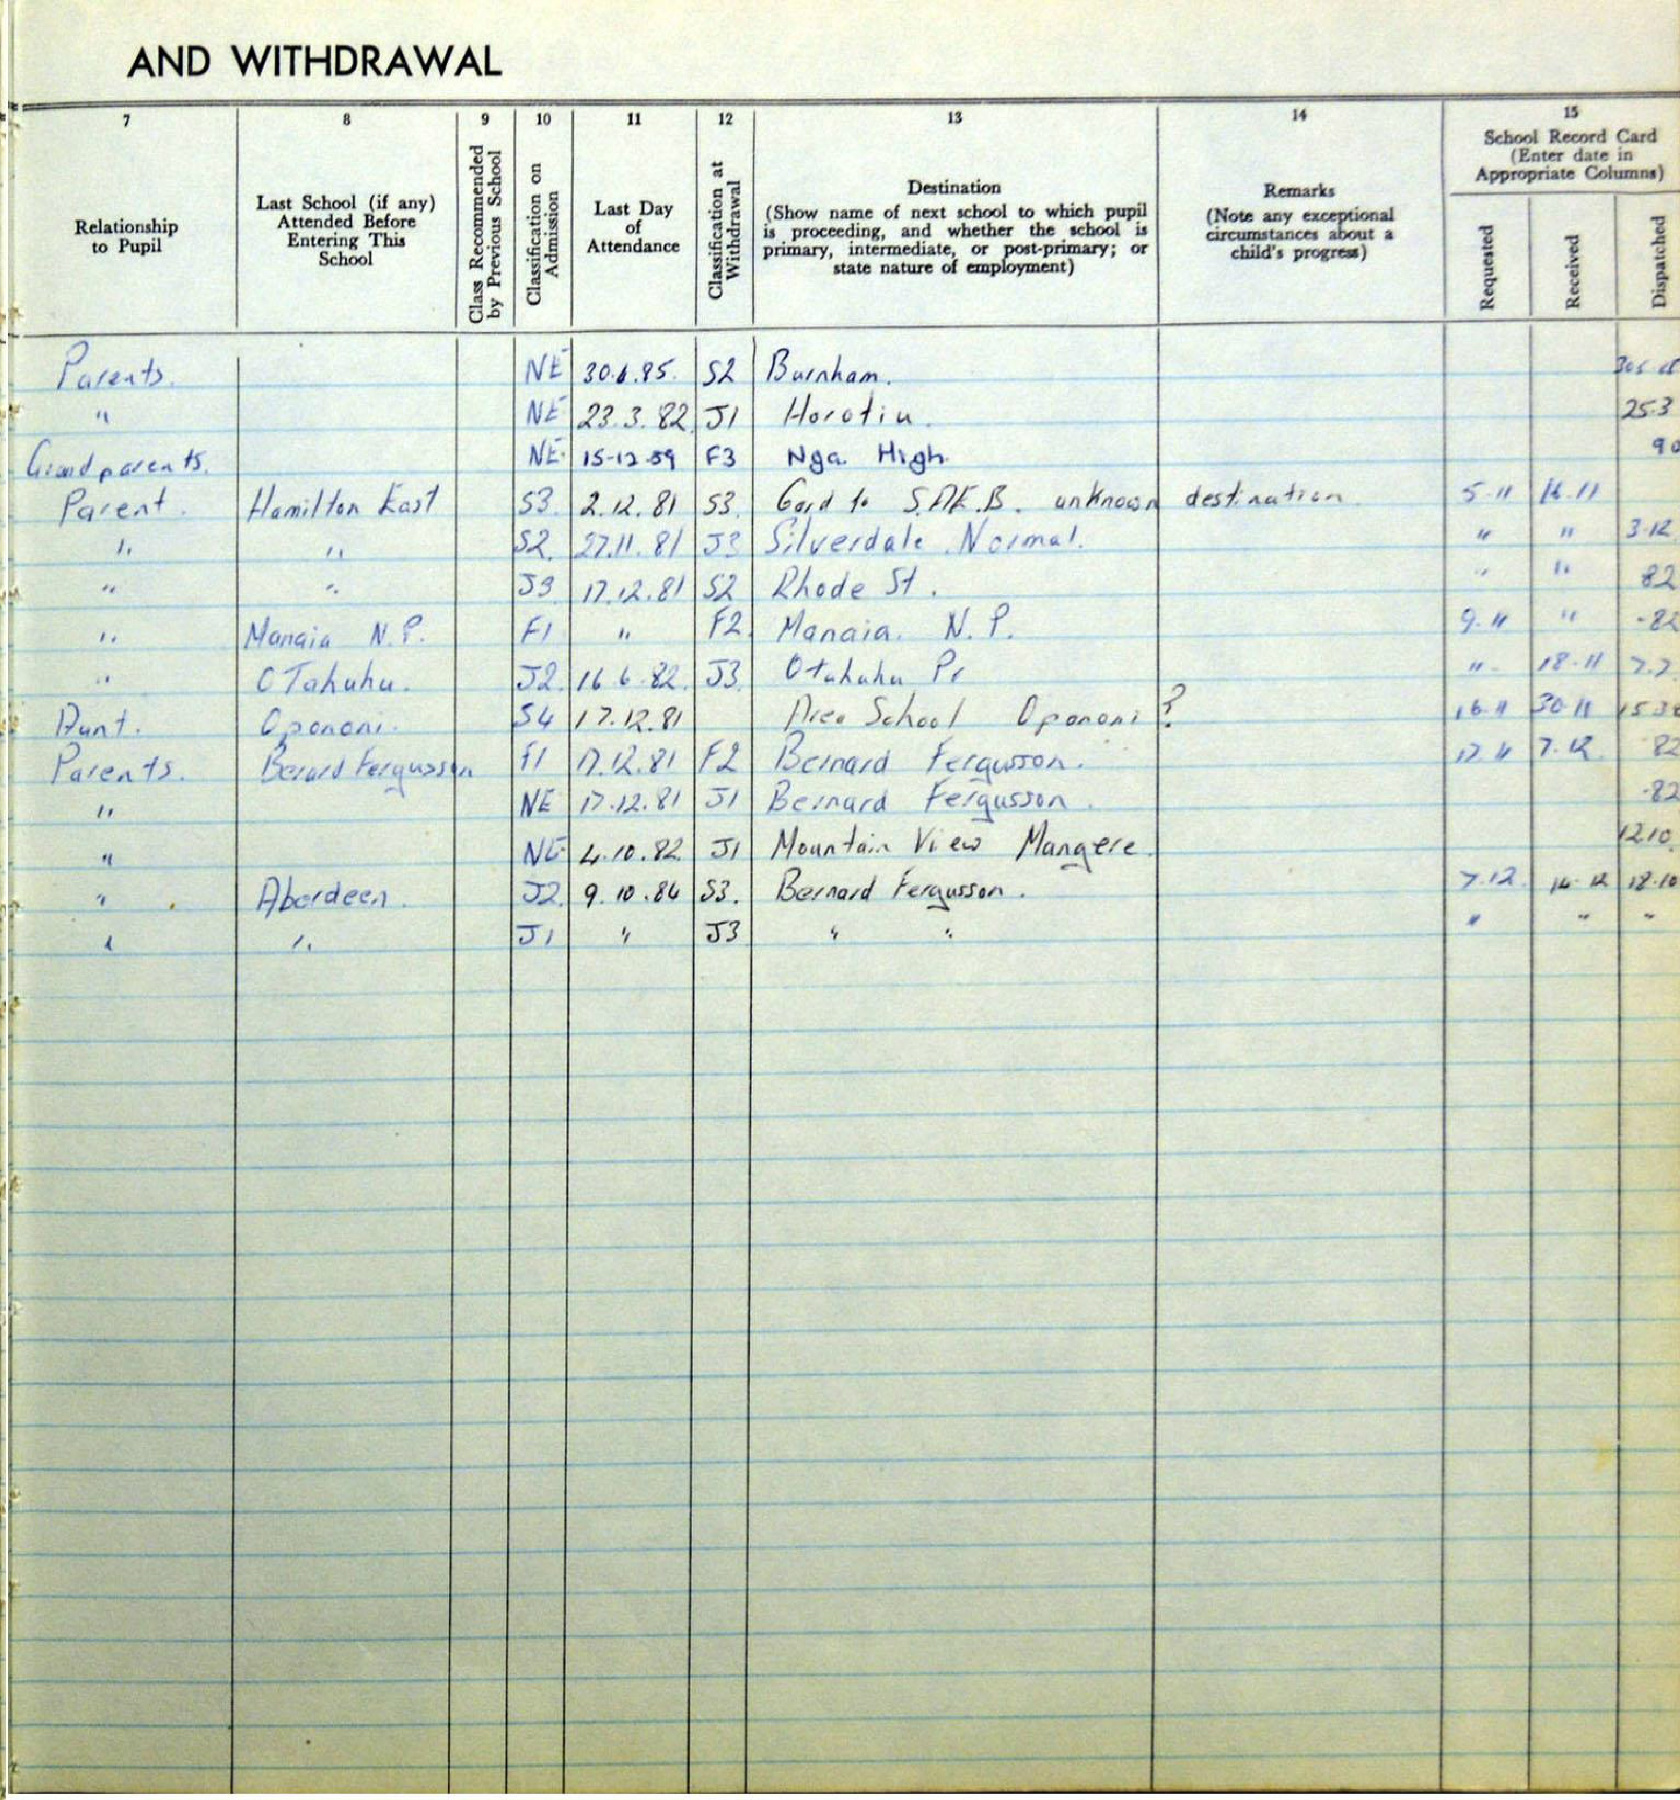 AND WITHDRAWAL
7 8 9 10 11 12 13 14 15
Relationship to Pupil
Last School (if any) Attended Before Entering This School
Class Recommended by Previous School
Classification on Admission
Last Day of Attendance
Classification at Withdrawal
Destination
(Show name of next school to which pupil is proceeding, and whether the school is primary, intermediate, or post-primary; or state nature of employment)
Remarks
(Note any exceptional circumstances about a child's progress)
School Record Card
(Enter date in Appropriate Columns)
Requested
Received
Dispatched
Parents. NE S2 Burnham.
" NE 23.3.82 J1 Horotiu. 25.3
Grandparents. NE 15-12-89 F3 Nga. High 90
Parent. Hamilton East S3 2.12.81 S3. Card to unknown destination 5-11 16-11
" " S2. 27.11.81 J3 Silverdale Normal. " " 3-12
" " J3 17.12.81 S2 Rhode St. " " 82
" Manaia N.P. F1 " F2 Manaia. N.P. 9.11 " -82
" OTahuhu. J2. 16.6.82. J3. Otahuhu Pr " 18-11 7.7
Aunt. Opononi. S4 17.12.81 Area School Opononi ? 16-11 30-11
Parents. Berard Fergusson F1 17.12.81 F2 Bernard Fergusson. 17.11 7.12. 82
" NE 17.12.81 J1 Bernard Fergusson. -82
" NE 4.10.82. J1 Mountain View Mangere. 12.10.
" Aberdeen. J2. 9.10.84 S3. Bernard Fergusson. 7.12. 14-12 18-10
" " J1 " J3 " " " " "